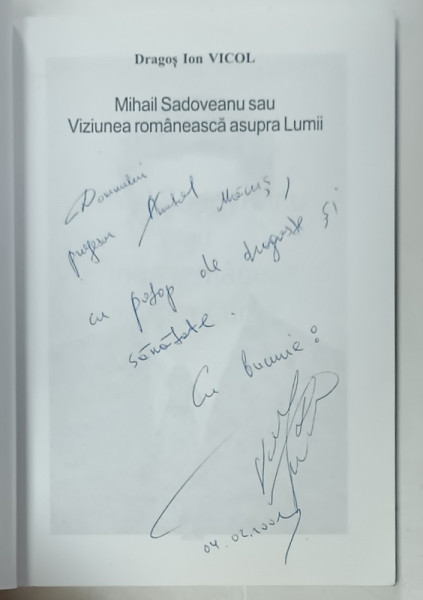 Dragoș Ion VICOL
Mihail Sadoveanu sau
Viziunea românească asupra Lumii
Domnului
profesor
cu potop de dragoste și
sănătate.
Cu bucurie: